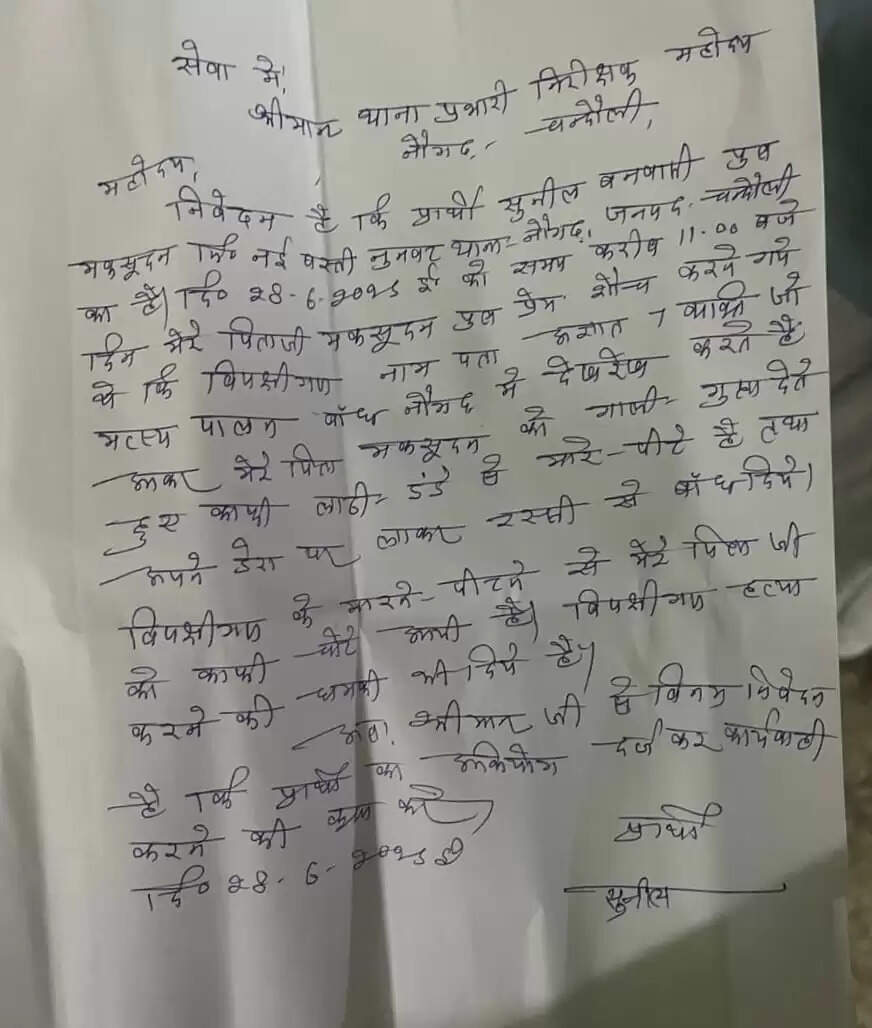 सेवा में,
श्रीमान थाना प्रभारी निरीक्षक महोदय
नौगढ़, चन्दौली,
महोदय,
निवेदन है कि प्रार्थी सुनील बनवासी पुत्र
मकसूदन नि० नई बस्ती नुनवट थाना- नौगढ़, जनपद- चन्दौली
का है। दि० 28-6-2025 ई० को समय करीब 11.00 बजे
दिन मेरे पिताजी मकसूदन पुत्र प्रेम शौच करने गये
थे कि विपक्षीगण नाम पता अज्ञात 7 व्यक्ति जो
मत्स्य पालन बाँध नौगढ़ में देखरेख करते हैं
आकर मेरे पिता मकसूदन को गाली- गुप्ता देते
हुए काफी लाठी- डंडे से मारे-पीटे है तथा
अपने डेरा पर लाकर रस्सी से बाँध दिये।
विपक्षीगण के मारने-पीटने से मेरे पिता जी
को काफी चोटें आयी है। विपक्षीगण हत्या
करने की धमकी भी दिये है।
अतः श्रीमान जी से विनम्र निवेदन
है कि प्रार्थी का अभियोग दर्ज कर कार्यवाही
करने की कृपा करें।
दि० 28-6-2025 ई०
प्रार्थी
सुनील